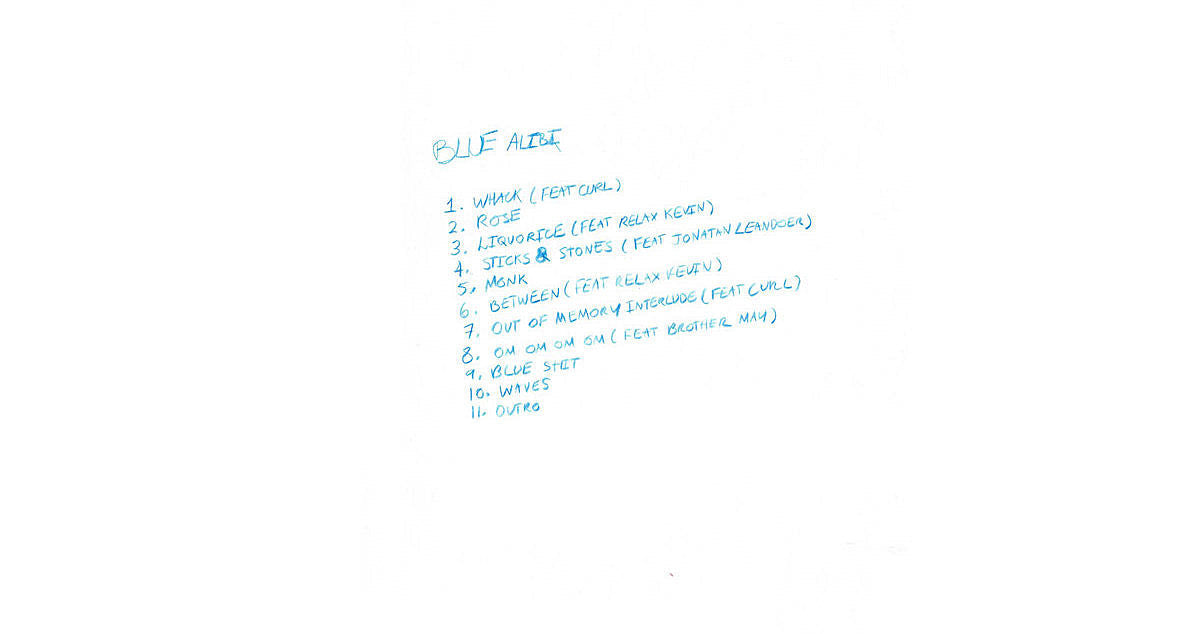 BLUE ALIBI
1. WHACK (FEAT CURL)
2. ROSE
3. LIQUORICE (FEAT RELAX KEVIN)
4. STICKS & STONES (FEAT JONATAN LEANDOER)
5. MONK
6. BETWEEN (FEAT RELAX KEVIN)
7. OUT OF MEMORY INTERLUDE (FEAT CURL)
8. OM OM OM OM (FEAT BROTHER MAY)
9. BLUE SHIT
10. WAVES
11. OUTRO